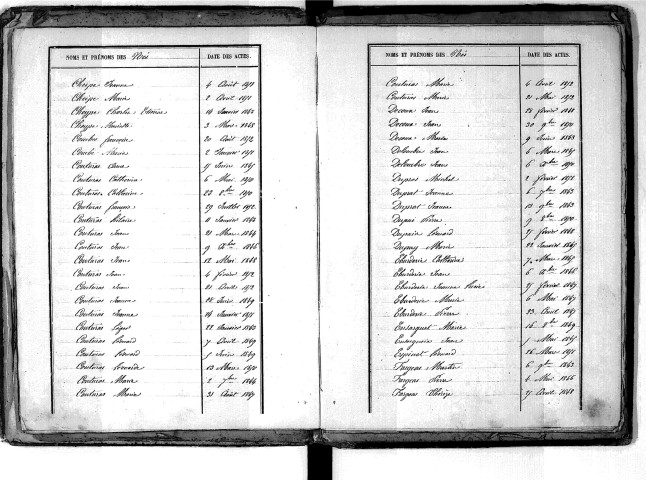 NOMS ET PRÉNOMS DES Nés DATE DES ACTES.
Cheype Jeanne 4 Août 1871
Cheype Marie 2 Avril 1871
Cheype Charles 16 Janvier 1863
Cheype 3 Mai 1868
Combe françoise 20 Août 1872
Combe 2 Janvier 1871
Couturas Anna 17 Juin 1865
Couturas Catherine 6 Mai 1870
Couturas Catherine 22 8bre 1870
Couturas françois 29 Juillet 1872
Couturas Hilaire 11 Janvier 1863
Couturas Jean 21 Mars 1864
Couturas Jean 9 Xbre 1866
Couturas Jean 12 Mai 1868
Couturas Jean 4 février 1872
Couturas Jean 21 Avril 1872
Couturas Jeanne 24 Juin 1869
Couturas Jeanne 26 Janvier 1871
Couturas 22 Janvier 1863
Couturas Léonard 7 Avril 1869
Couturas Léonard 5 Juin 1869
Couturas Léonarde 13 Mars 1870
Couturas Marie 2 7bre 1866
Couturas Marie 31 Août 1867
NOMS ET PRÉNOMS DES Nés DATE DES ACTES.
Couturas Marie 4 Avril 1872
Couturas Marie Mai 1872
Decoux Jean 28 février 1861
Decoux Jean 30 9bre 1870
Decoux 9 Juin 1863
Delombre Jean 6 Mars 1865
Delombre Jean 6 Xbre 1870
Dupras Michel 2 février 1872
Duprat Jeanne 6 7bre 1863
Duprat Jeanne 13 9bre 1863
Dupuis Pierre 9 8bre 1870
Dupuis Léonard 17 février 1868
Dupuy Marie 22 Janvier 1865
Eburderie Catherine 7 Mars 1865
Eburderie Jean 6 Xbre 1866
Eburderie Jeanne 17 février 1867
Eburderie Marie 6 Mai 1867
Eburderie Pierre 23 Avril 1867
Marie 16 8bre 1869
Jean Mai 1865
Espinat Léonard 26 Mars 1871
Fargeas Martin 6 9bre 1863
Fargeas Pierre 4 Mai 1866
Fargeas 17 Avril 1868